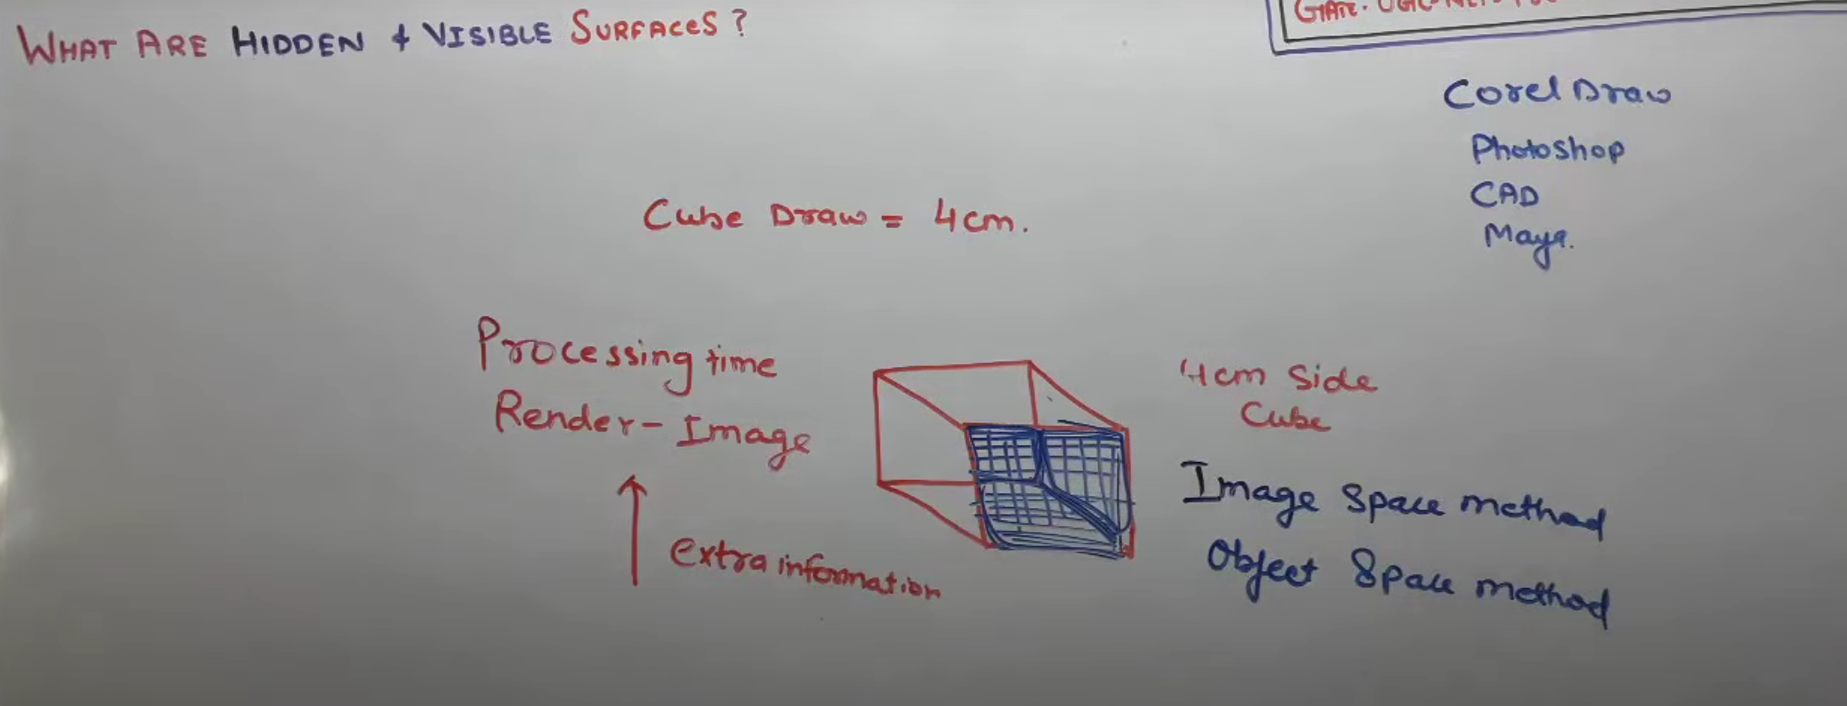 WHAT ARE HIDDEN & VISIBLE SURFACES?
Corel Draw
Photoshop
CAD
Maya.
Cube Draw = 4cm.
Processing time
Render - Image
extra information
4cm Side
Cube
Image Space method
Object Space method